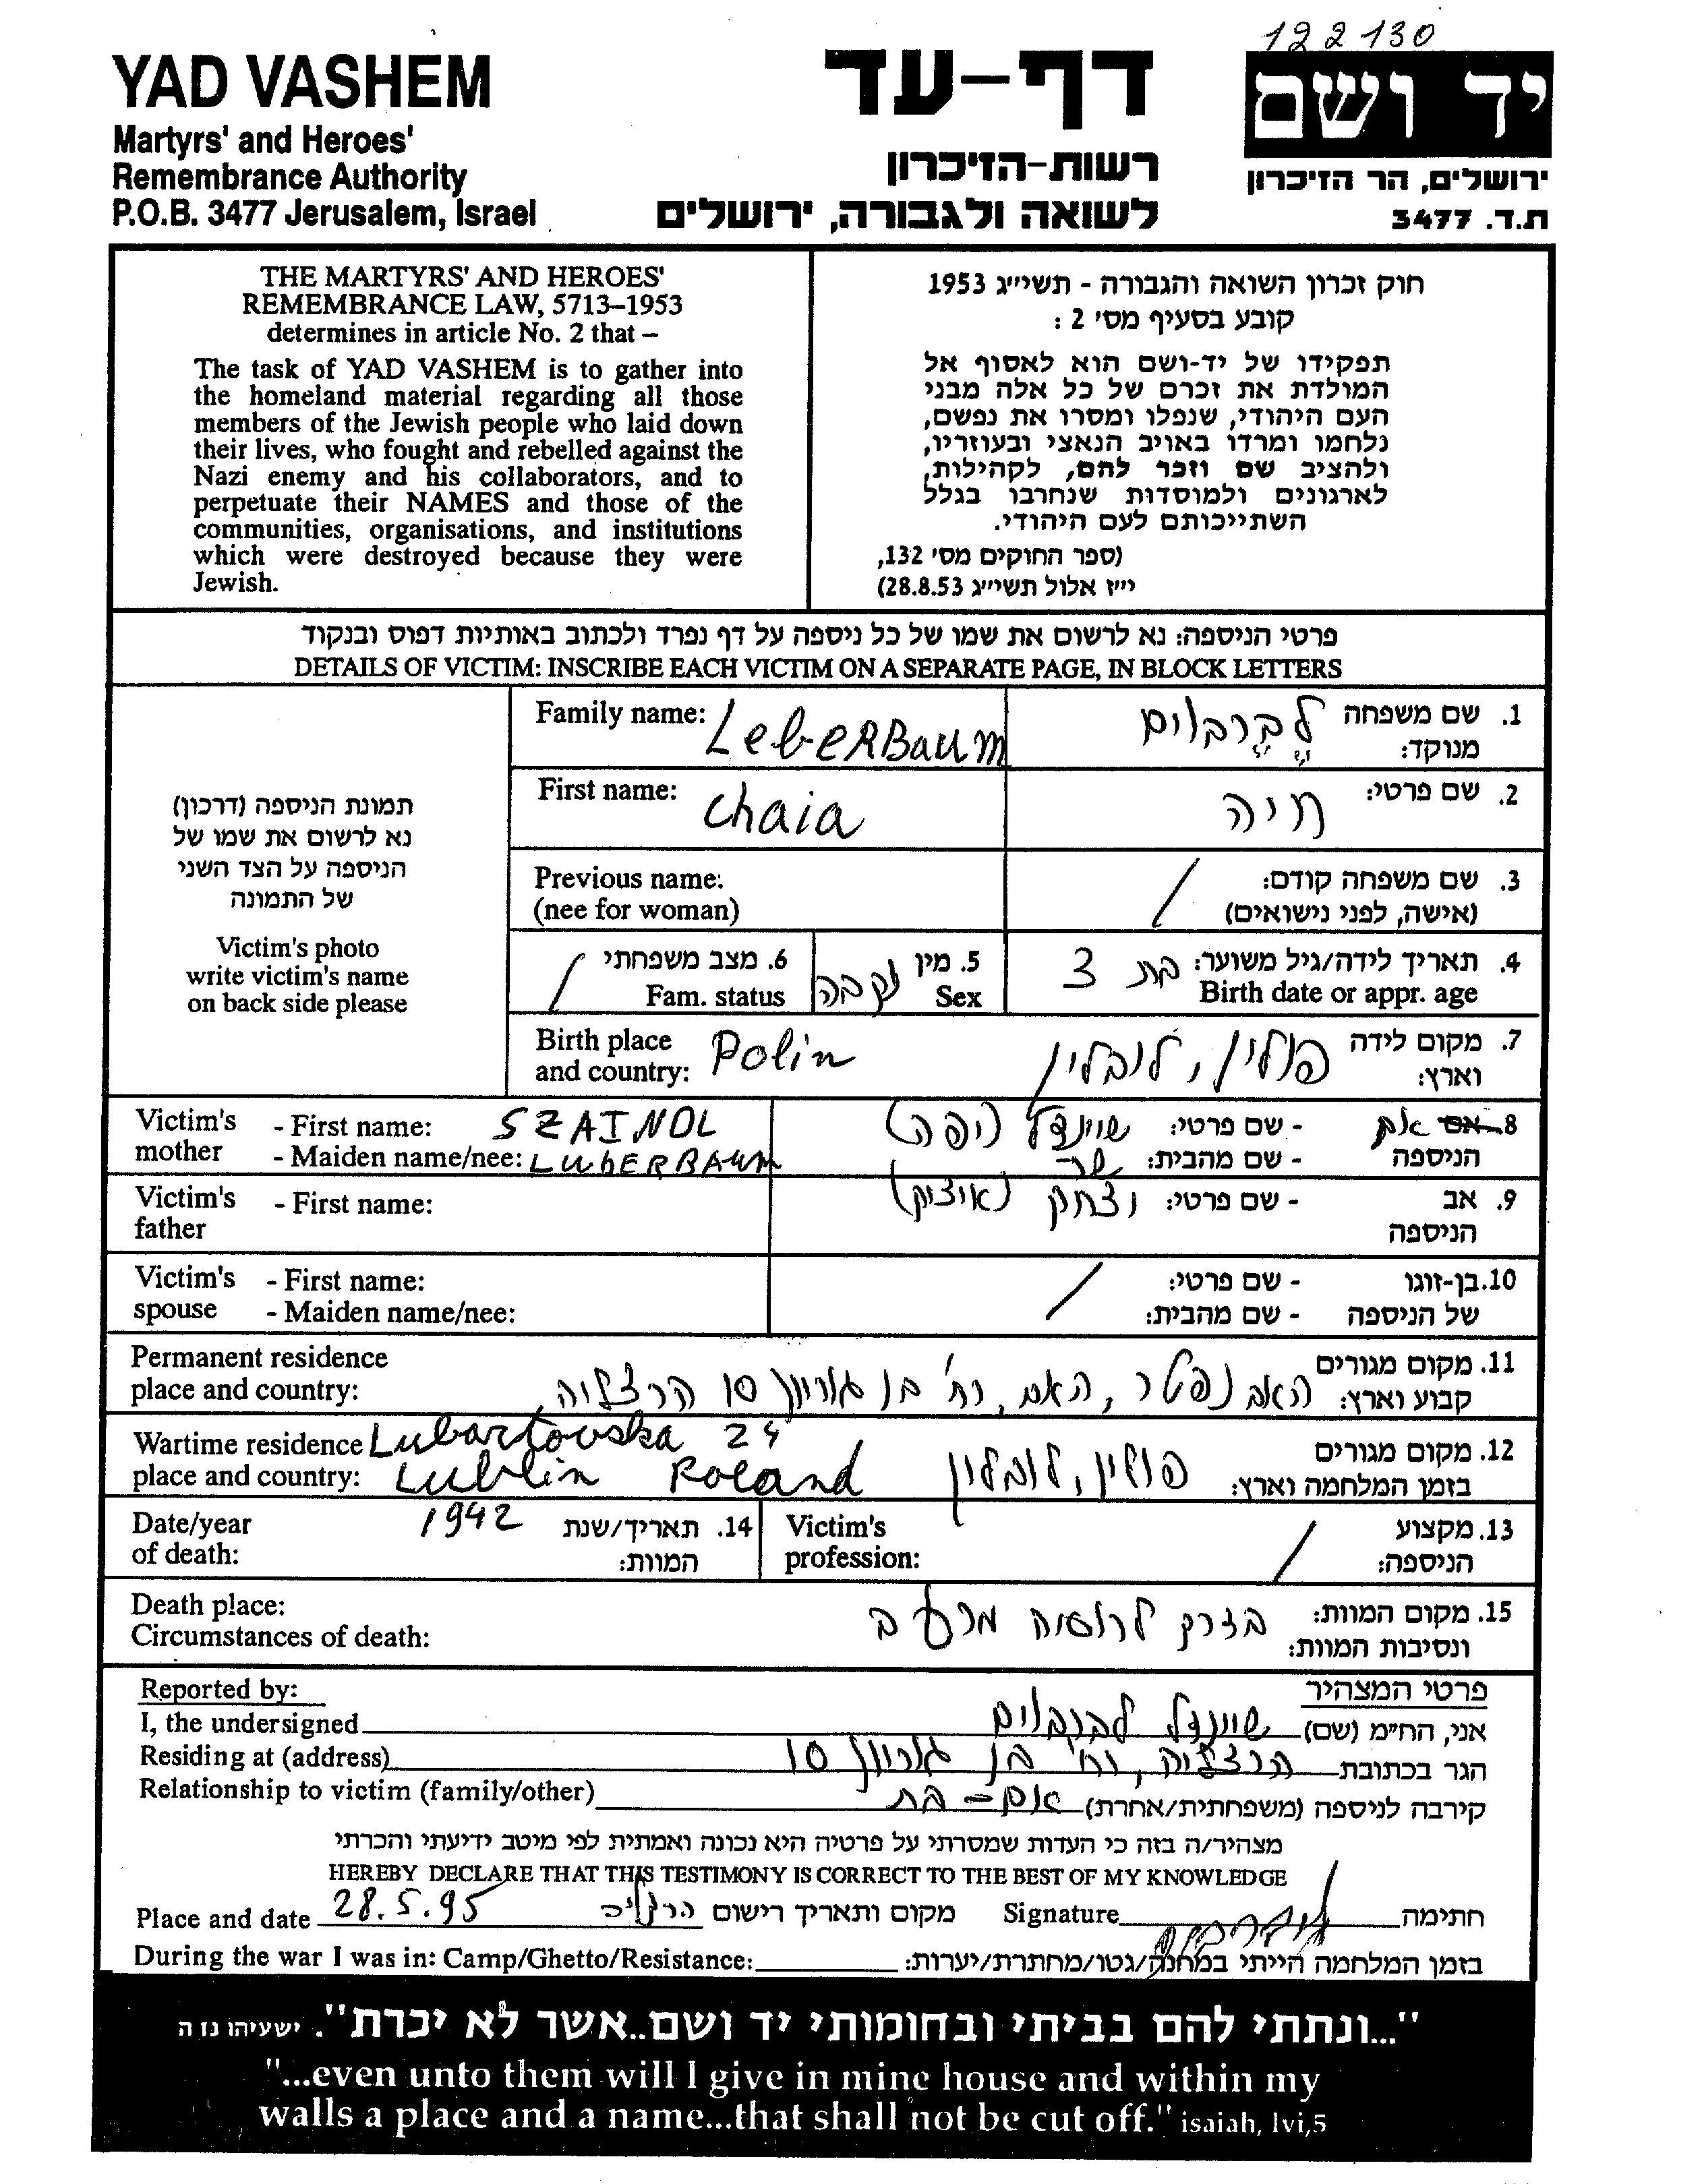 122130
YAD VASHEM
Martyrs' and Heroes'
Remembrance Authority
P.O.B. 3477 Jerusalem, Israel
דף-עד
רשות-הזיכרון
לשואה ולגבורה, ירושלים
יד ושם
ירושלים, הר הזיכרון
ת.ד. 3477
THE MARTYRS' AND HEROES'
REMEMBRANCE LAW, 5713–1953
determines in article No. 2 that –
The task of YAD VASHEM is to gather into
the homeland material regarding all those
members of the Jewish people who laid down
their lives, who fought and rebelled against the
Nazi enemy and his collaborators, and to
perpetuate their NAMES and those of the
communities, organisations, and institutions
which were destroyed because they were
Jewish.
חוק זכרון השואה והגבורה - תשי״ג 1953
קובע בסעיף מס׳ 2 :
תפקידו של יד-ושם הוא לאסוף אל
המולדת את זכרם של כל אלה מבני
העם היהודי, שנפלו ומסרו את נפשם,
נלחמו ומרדו באויב הנאצי ובעוזריו,
ולהציב שם וזכר להם, לקהילות,
לארגונים ולמוסדות שנחרבו בגלל
השתייכותם לעם היהודי.
(ספר החוקים מס׳ 132,
י״ז אלול תשי״ג 28.8.53)
פרטי הניספה: נא לרשום את שמו של כל ניספה על דף נפרד ולכתוב באותיות דפוס ובנקוד
DETAILS OF VICTIM: INSCRIBE EACH VICTIM ON A SEPARATE PAGE, IN BLOCK LETTERS
תמונת הניספה (דרכון)
נא לרשום את שמו של
הניספה על הצד השני
של התמונה
Victim's photo
write victim's name
on back side please
Family name: LeberBaum
1. שם משפחה מנוקד: לברבוים
First name: Chaia
2. שם פרטי: חיה
Previous name:
(nee for woman)
3. שם משפחה קודם: /
(אישה, לפני נישואים)
4. תאריך לידה/גיל משוער: בת 3
Birth date or appr. age
5. מין נקבה
Sex
6. מצב משפחתי /
Fam. status
Birth place
and country: Polin
7. מקום לידה וארץ: פולין, לובלין
Victim's mother - First name: SZAINDL
- Maiden name/nee: LUBERBAUM
8. אם אם הניספה - שם פרטי: שיינדל (יפה)
- שם מהבית:
Victim's father - First name:
9. אב הניספה - שם פרטי: יצחק (איציק)
Victim's spouse - First name:
- Maiden name/nee:
10. בן-זוגו של הניספה - שם פרטי: /
- שם מהבית:
Permanent residence
place and country:
11. מקום מגורים קבוע וארץ: האב נפטר, האם, רח' בן גוריון 10 הרצליה,
Wartime residence Lubartovska 24
place and country: Lublin Poland
12. מקום מגורים בזמן המלחמה וארץ: פולין, לובלין
Date/year
of death: 1942
14. תאריך/שנת המוות:
Victim's
profession:
13. מקצוע הניספה: /
Death place:
Circumstances of death:
15. מקום המוות: ונסיבות המוות: בדרך לרוסיה מרעב
Reported by:
פרטי המצהיר
I, the undersigned
אני, הח״מ (שם) שיינדל לברבוים
Residing at (address)
הגר בכתובת הרצליה, רח' בן גוריון 10
Relationship to victim (family/other)
קירבה לניספה (משפחתית/אחרת) אם - בת
מצהיר/ה בזה כי העדות שמסרתי על פרטיה היא נכונה ואמתית לפי מיטב ידיעתי והכרתי
HEREBY DECLARE THAT THIS TESTIMONY IS CORRECT TO THE BEST OF MY KNOWLEDGE
Place and date 28.5.95 הרצליה מקום ותאריך רישום Signature חתימה
During the war I was in: Camp/Ghetto/Resistance:
בזמן המלחמה הייתי במחנה/גטו/מחתרת/יערות:
"...ונתתי להם בביתי ובחומותי יד ושם..אשר לא יכרת". ישעיהו נו ה
"...even unto them will I give in mine house and within my
walls a place and a name...that shall not be cut off." isaiah, lvi,5